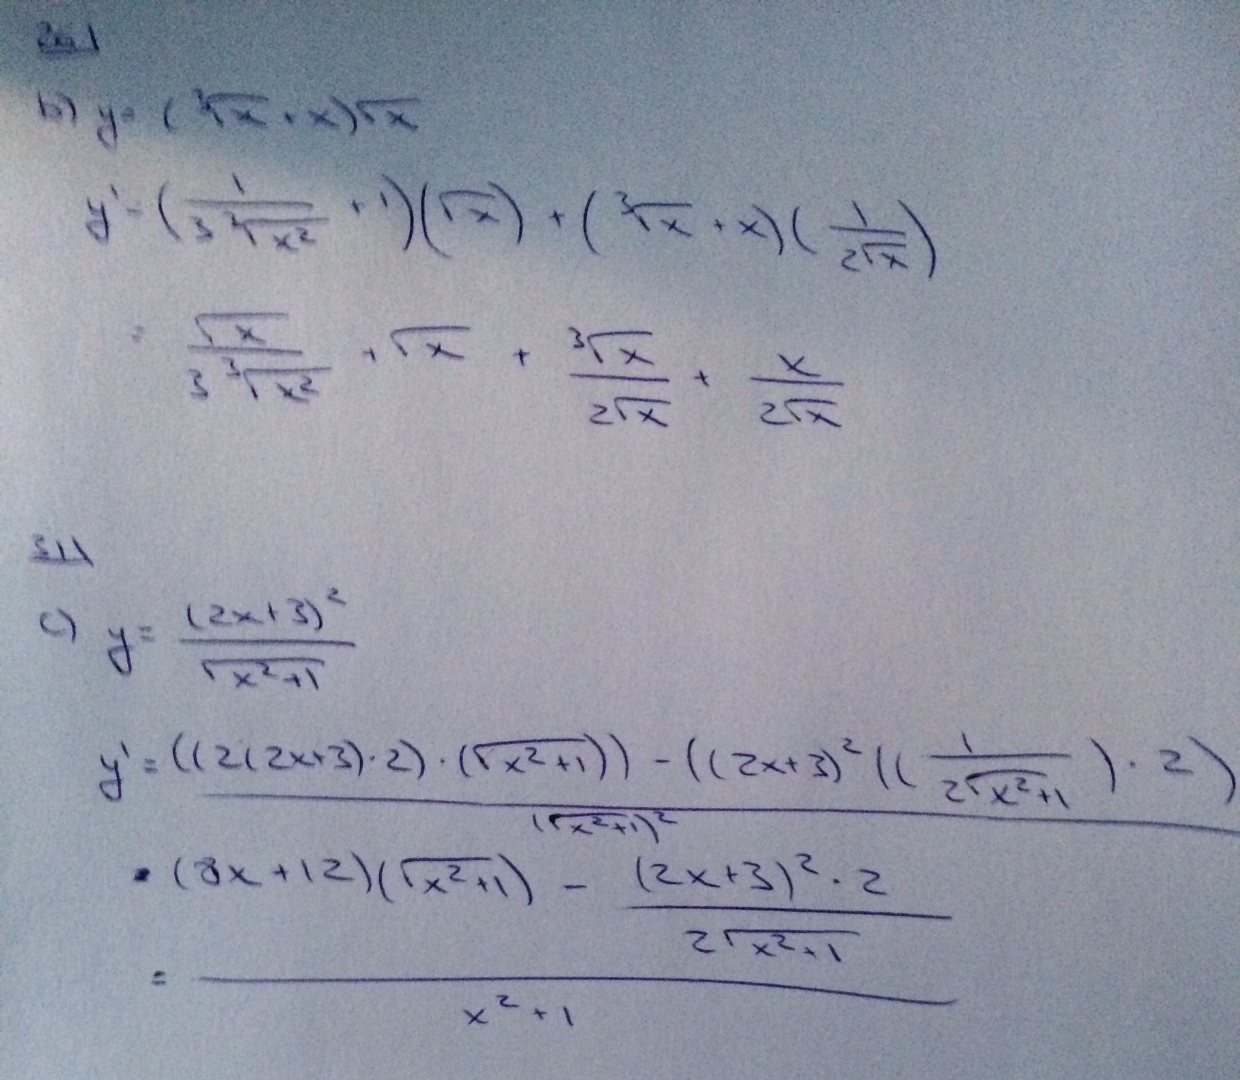 b) y = (∛x + x)√x
y' = (1/(3∛x²) + 1)(√x) + (∛x + x)(1/(2√x))
= √x/(3∛x²) + √x + ∛x/(2√x) + x/(2√x)
311
c) y = (2x+3)²/√(x²+1)
y' = ((2(2x+3)·2)·(√(x²+1))) - ((2x+3)²((1/(2√(x²+1)))·2)
(√(x²+1))²
(8x+12)(√(x²+1)) - (2x+3)²·2/(2√(x²+1))
= x²+1